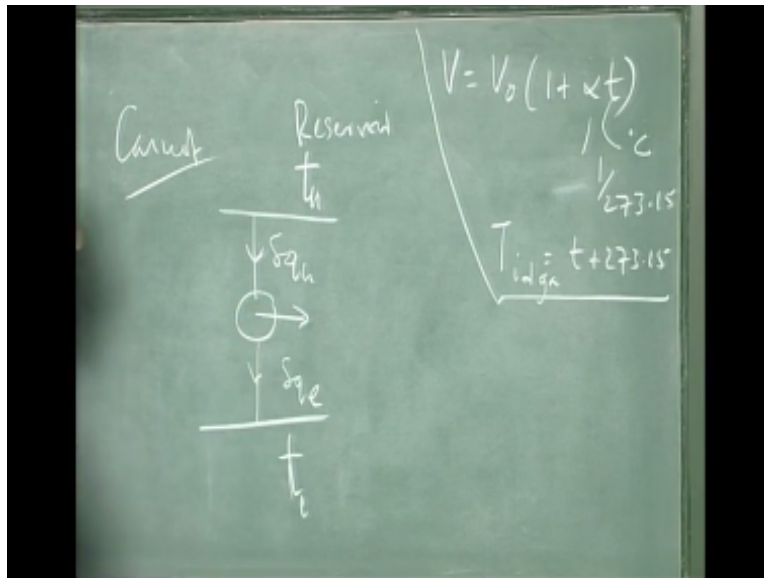 Carnot
Reservoir
t_h
δq_h
δq_l
t_l
V = V₀ (1 + αt)
°C
1/273.15
T_id gas = t + 273.15